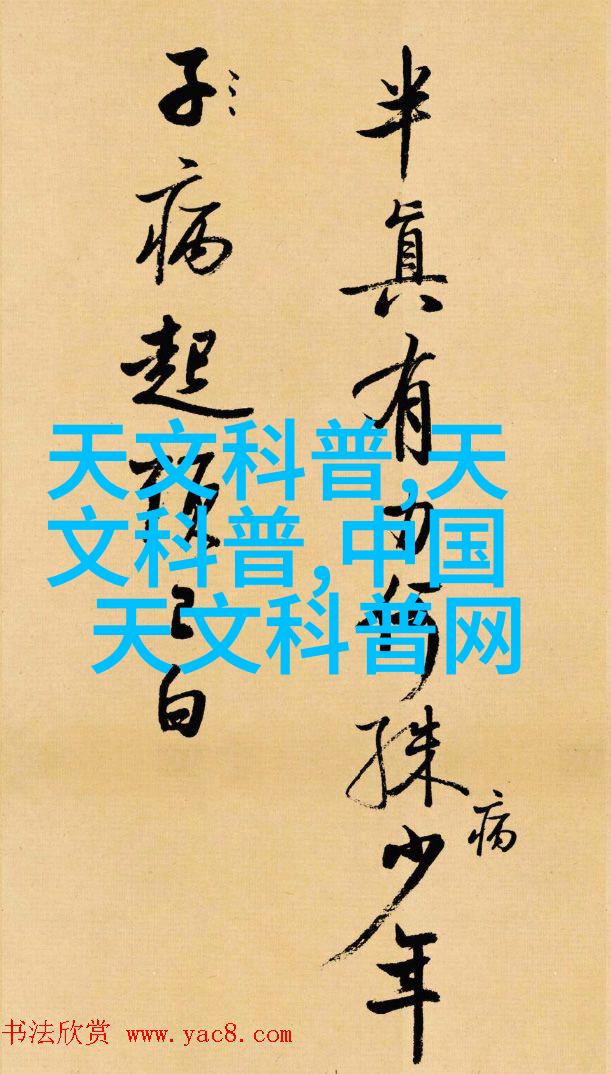 半眞有力何殊少年
病
子病起已白
天文科普,天
文科普,中国
天文科普网
书法欣赏 www.yac8.com